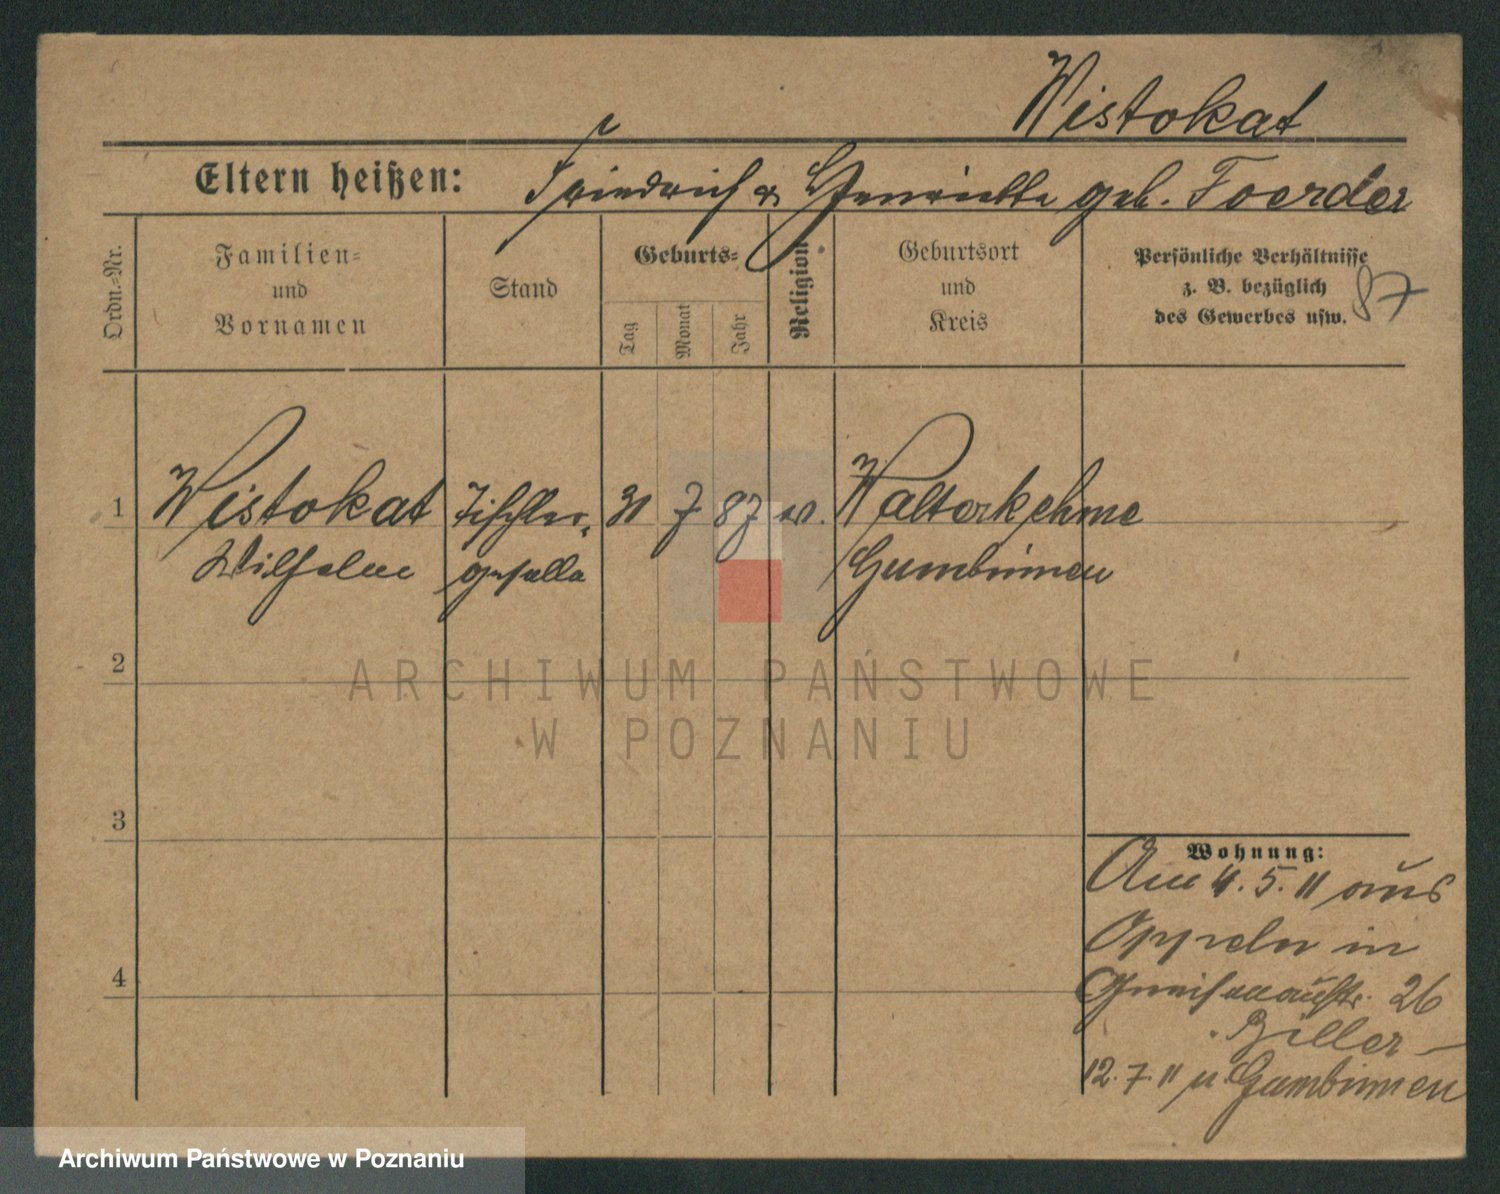 Wistokat
Eltern heißen: Friedrich & Henriette geb. Foerder
Ordn.-Nr.
Familien- und Vornamen
Stand
Geburts-
Tag
Monat
Jahr
Religion
Geburtsort und Kreis
Persönliche Verhältnisse
z. B. bezüglich
des Gewerbes usw.
87
1 Wistokat Tischler- 31 7 87 ev. Walterkehme
Wilhelm geselle Gumbinnen
2
3
4
Wohnung:
Am 4. 5. 11 aus
Oppeln in
Gneisenaustr. 26
Biller
12. 7. 11 n. Gumbinnen
ARCHIWUM PAŃSTWOWE
W POZNANIU
Archiwum Państwowe w Poznaniu